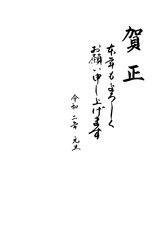 賀正
本年もよろしく
お願い申し上げます
令和二年 元旦